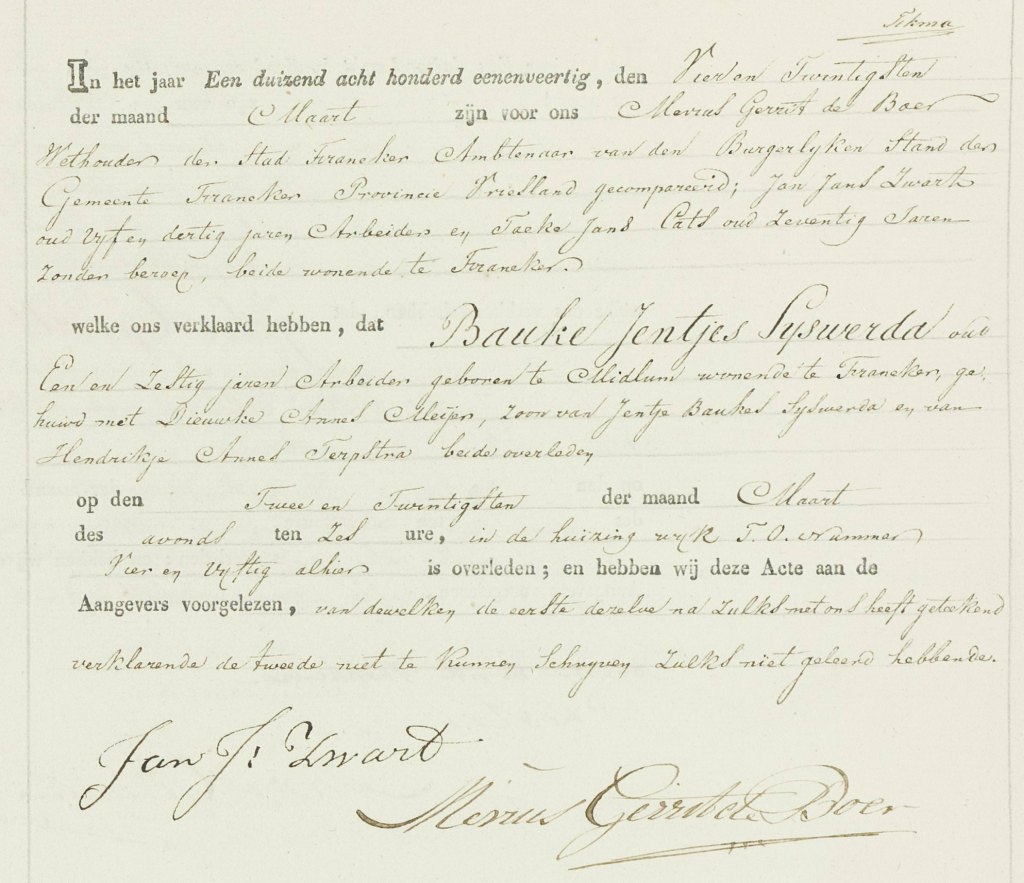 Tekma
In het jaar Een duizend acht honderd eenenveertig, den Vier en Twintigsten
der maand Maart zijn voor ons Merius Gerrit de Boer
Wethouder der Stad Franeker Ambtenaar van den Burgerlyken Stand der
Gemeente Franeker Provincie Vriesland gecompareerd; Jan Jans Zwart
oud Vyf en dertig jaren Arbeider en Taeke Jans Cats oud Zeventig Jaren
Zonder beroep, beide wonende te Franeker.
welke ons verklaard hebben, dat Bauke Jentjes Syswerda oud
Een en Zestig jaren Arbeider geboren te Midlum wonende te Franeker, ge-
huwd met Dieuwke Annes Meijer, zoon van Jentje Baukes Syswerda en van
Hendrikje Annes Terpstra beide overleden
op den Twee en Twintigsten der maand Maart
des avonds ten Zes ure, in de huizing wyk T. O. nummer
Vier en Vyftig alhier is overleden; en hebben wij deze Acte aan de
Aangevers voorgelezen, van dewelken de eerste dezelve na Zulks met ons heeft geteekend
verklarende de tweede niet te kunnen Schryven Zulks niet geleerd hebbende.
Jan Js Zwart
Merius Gerrit de Boer